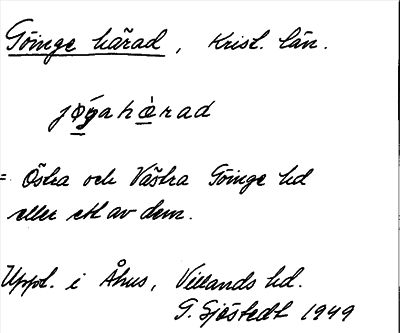 Göinge härad, Krist. län.
jǿ̱ŋahæ̱̀rad
= Östra och Västra Göinge hd
eller ett av dem.
Uppt. i Åhus, Villands hd.
G. Sjöstedt 1949